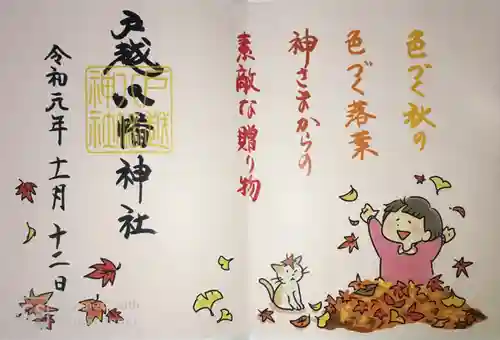 色づく秋の
色づく落葉
神さまからの
素敵な贈り物
戸越八幡神社
戸越八幡神社
令和元年十一月十二日